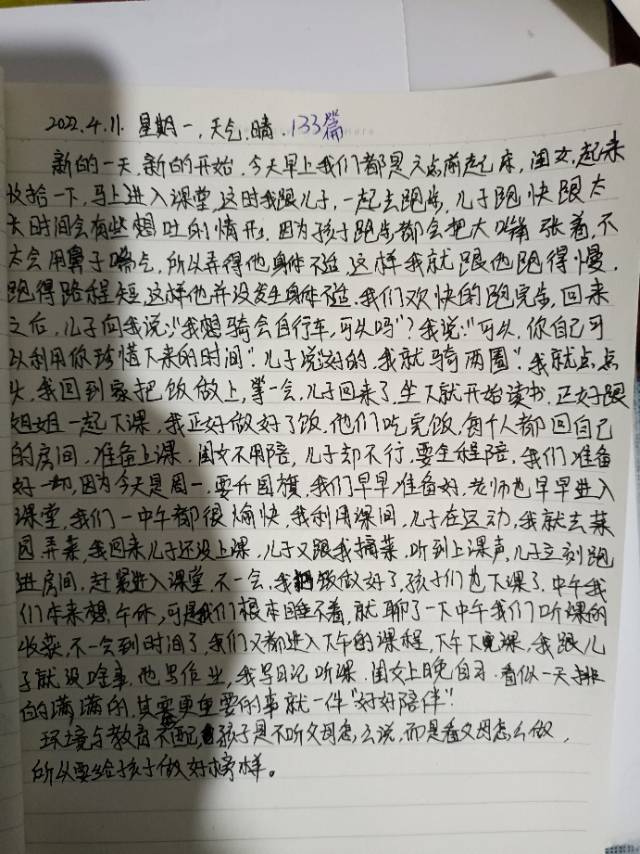 2022.4.11. 星期一,天气,晴.133篇
新的一天,新的开始,今天早上我们都是六点前起床,闺女,起来
收拾一下,马上进入课堂,这时我跟儿子,一起去跑步,儿子跑快跟太
长时间会有些想吐的情形,因为孩子跑步都会把大嘴张着,不
太会用鼻子喘气,所以弄得他身体不适,这样我就跟他跑得慢,
跑得路程短,这样他并没发生身体不适,我们欢快的跑完步,回来
之后,儿子向我说:“我想骑会自行车,可以吗”?我说:“可以,你自己可
以利用你珍惜下来的时间”.儿子说:好的,我就骑两圈”.我就点点
头,我回到家把饭做上,等一会,儿子回来了,坐下就开始读书.正好跟
姐姐一起下课,我正好做好了饭,他们吃完饭,每个人都回自己
的房间,准备上课.闺女不用陪,儿子却不行,要全程陪,我们准备
好一切,因为今天是周一,要升国旗,我们早早准备好,老师也早早进入
课堂,我们一中午都很愉快,我利用课间,儿子在运动,我就去菜
园弄菜,我回来儿子还没上课,儿子又跟我摘菜,听到上课声,儿子立刻跑
进房间,赶紧进入课堂,不一会,我把饭做好了,孩子们也下课了,中午我
们本来想,午休,可是我们根本睡不着,就聊了一下中午我们听课的
收获,不一会到时间了,我们又都进入下午的课程,下午下完课,我跟儿
子就没啥事,他写作业,我写日记听课.闺女上晚自习.看似一天排
的满满的,其实更重要的事就一件“好好陪伴”.
环境与教育不配,孩子是不听父母怎么说,而是看父母怎么做,
所以要给孩子做好榜样。